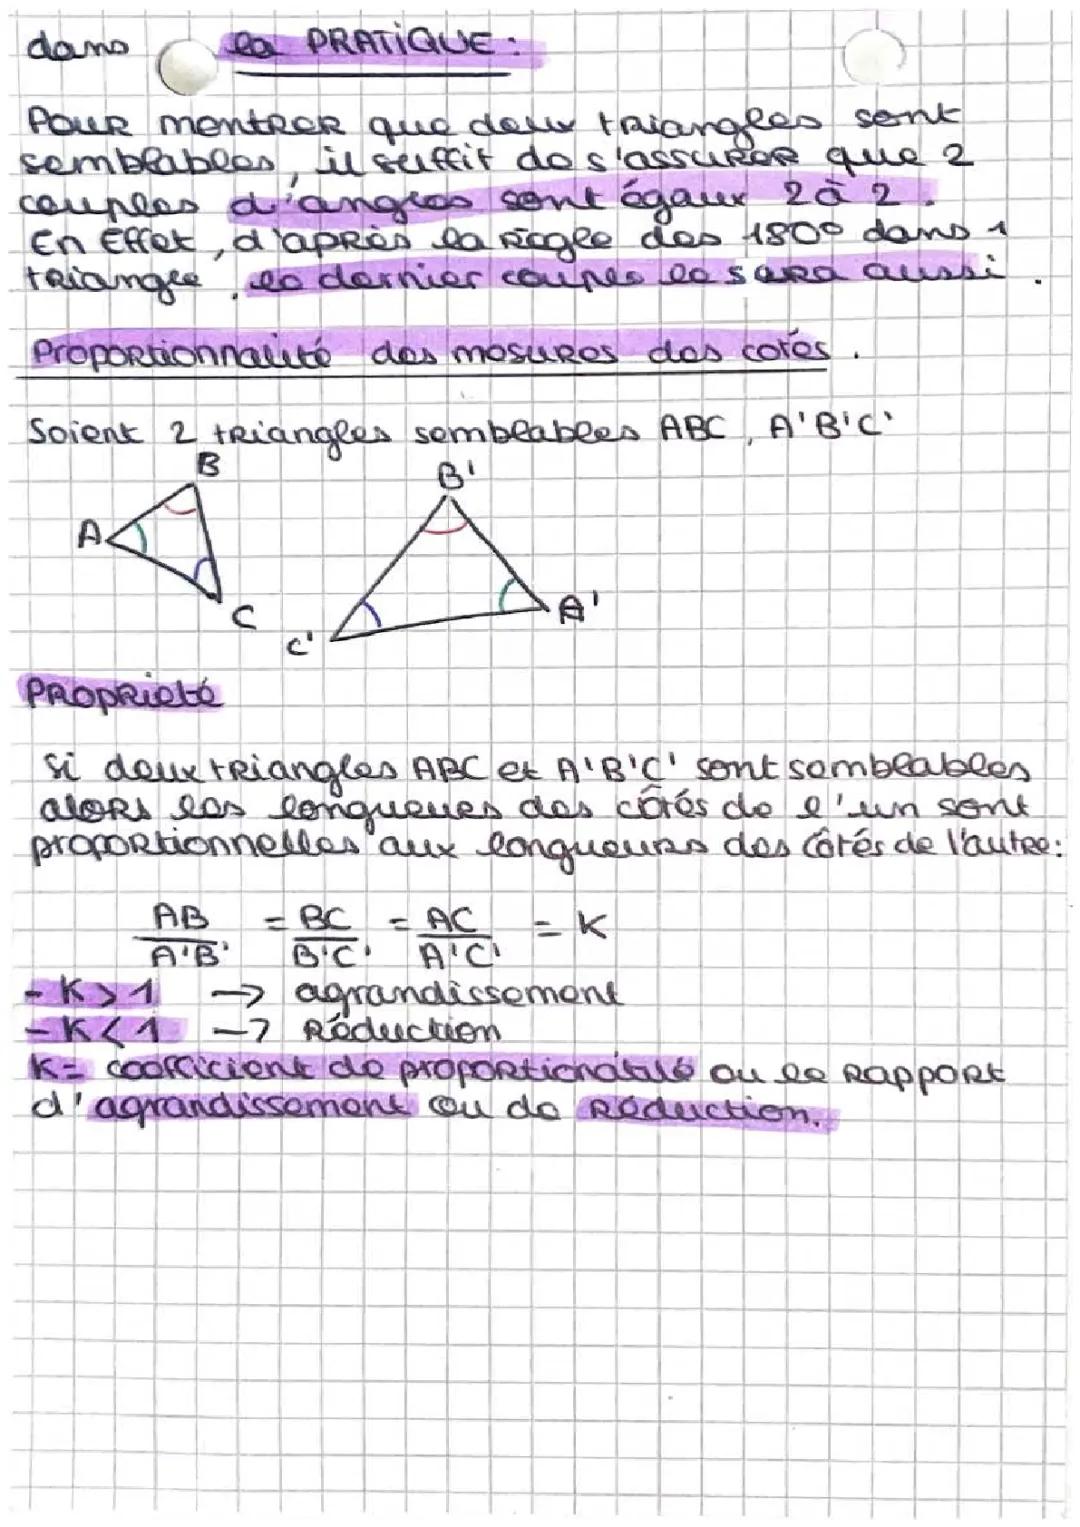 dans la PRATIQUE :
Pour montrer que deux triangles sont
semblables, il suffit de s'assurer que 2
couples d'angles sont égaux 2 à 2.
En Effet, d'après la règle des 180° dans 1
triangle, le dernier couples le sera aussi.
Proportionnalité des mesures des cotés.
Soient 2 triangles semblables ABC, A'B'C'
B
B'
A
A'
C
C'
PROPRIEté
si deux triangles ABC et A'B'C' sont semblables
alors les longueures des côtés de l'un sont
proportionnelles aux longueurs des côtés de l'autre:
AB/A'B' = BC/B'C' = AC/A'C' = K
- K > 1 → agrandissement
- K < 1 → Réduction
K = coefficient de proportionalité ou le Rapport
d'agrandissement ou de Réduction.